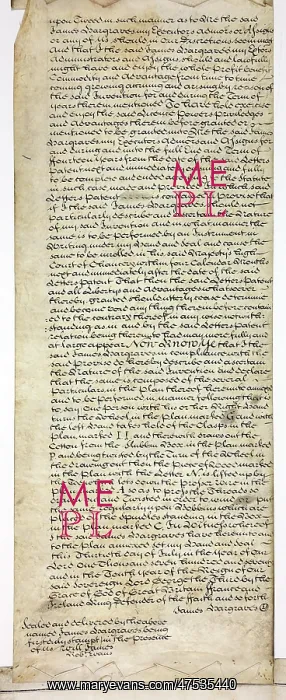 upon Tweed in such manner as to Me the said
James Hargraves my Executors Admors or Assigns
or any of us should in our Discretions seem meet
And that I the said James Hargraves my Exors
Administrators and Assigns should and lawfully
might have and enjoy the whole Profit Benefit
Commodity and Advantage from time to time
coming growing accruing and arising by reason of
the said Invention for and during the Term of
years therein mentioned To have hold exercise
and enjoy the said Licence Powers Priviledges
and Advantages therein before granted or
mentioned to be granted unto Me the said James
Hargraves my Executors Admors and Assigns for
and during and unto the full End and Term of
fourteen Years from the date of the Letters
Patent next and immediately and fully
to be compleat and ended the Statute
in such case made and which said
Letters Patent is contained a proviso that
if I the said James Hargraves should not
particularly describe and the Nature
of my said Invention and in what manner the
same is to be performed by an Instrument in
Writing under my Hand and Seal and cause the
same to be inrolled in this said Majestys High
Court of Chancery within four Calendar Months
next and immediately after the date of the said
Letters patent That then the said Letters Patent
and all Liberty and Advantages whatsoever
thereby granted should utterly cease determine
and become void any thing therein before contained
to the contrary thereof in any wise notwith
standing as in and by the said Letters patent
relation being thereunto had may more fully and
at large appear NOW KNOW YE that I the
said James Hargraves in compliance with the
said Proviso do hereby describe and ascertain
the Nature of the said Invention and declare
that the same is composed of the several
Particulars in the Plan thereof hereunto annexed
and to be performed in manner following that is
to say One person with his or her Right Hand
turns the Wheel in the Plan marked and with
the left Hand takes hold of the Clasps in the
Plan marked II and therewith draws out the
Cotton from the Slubbin Box in the Plan marked
P and being twisted by the Turn of the Wheel in
the drawing out then the piece of Wood marked
in the Plan with the Letter N is lifted up by
the Toe which lets down the presser wire in the
Plan so as to press the Threads
and Twisted in order to wind put
the regularly upon Bobbins which are
placed upon the Spindles standing in the Box
in the plan marked C In Witness whereof
the said James Hargraves have hereunto and
to the Plan annexed set my Hand and Seal
this Thirteenth day of July in the Year of our
Lord One Thousand seven hundred and seventy
and in the Tenth Year of the Reign of our
said Sovereign Lord George the Third by the
Grace of God of Great Britain France and
Ireland King defender of the faith and so forth
James Hargraves
Sealed and delivered by the above
named James Hargraves being
first duly stampt in the Presence
of us Will James
Robt Evans
ME
PL
ME
PL
www.maryevans.com/47535440